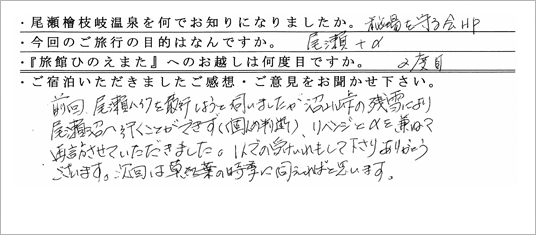 ・尾瀬檜枝岐温泉を何でお知りになりましたか。 秘湯を守る会HP
・今回のご旅行の目的はなんですか。 尾瀬+α
・『旅館ひのえまた』へのお越しは何度目ですか。 2度目
・ご宿泊いただきましたご感想・ご意見をお聞かせ下さい。
前回、尾瀬ハイクを敢行しようと伺いましたが沼山峠の残雪により
尾瀬沼へ行くことができず(個人の判断)、リベンジとαを兼ねて
再訪させていただきました。1人での受け入れもして下さりありがとう
ございます。次回は草紅葉の時季に伺えればと思います。